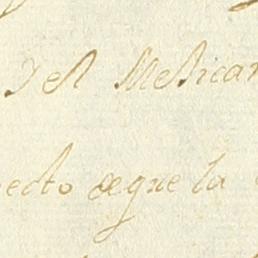 Y el Mexican
ecto deque la